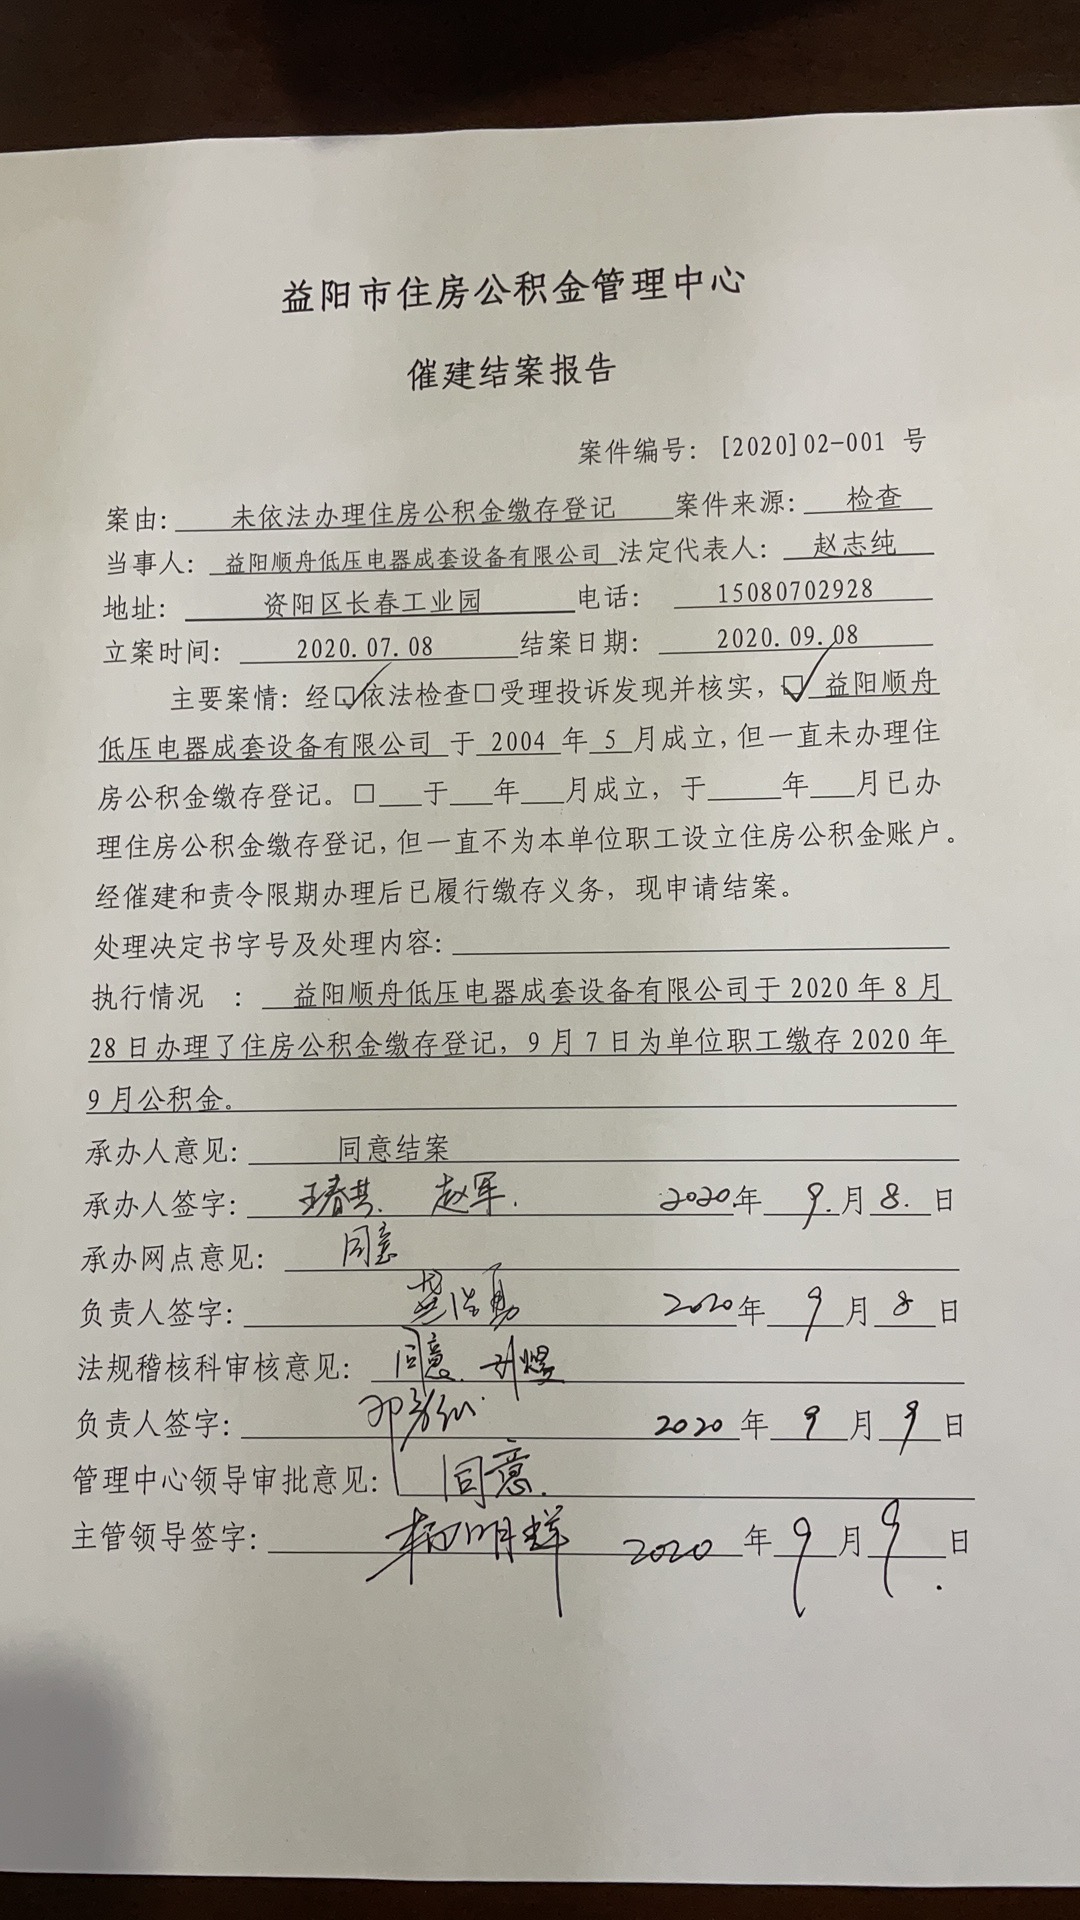 益阳市住房公积金管理中心
催建结案报告
案件编号：[2020]02-001 号
案由：未依法办理住房公积金缴存登记 案件来源：检查
当事人：益阳顺舟低压电器成套设备有限公司 法定代表人：赵志纯
地址：资阳区长春工业园 电话：15080702928
立案时间：2020.07.08 结案日期：2020.09.08
主要案情：经☑依法检查□受理投诉发现并核实，☑益阳顺舟
低压电器成套设备有限公司 于 2004 年 5 月成立，但一直未办理住
房公积金缴存登记。□___于___年___月成立，于_____年___月已办
理住房公积金缴存登记，但一直不为本单位职工设立住房公积金账户。
经催建和责令限期办理后已履行缴存义务，现申请结案。
处理决定书字号及处理内容：
执行情况 ：益阳顺舟低压电器成套设备有限公司于 2020 年 8 月
28 日办理了住房公积金缴存登记，9 月 7 日为单位职工缴存 2020 年
9 月公积金。
承办人意见：同意结案
承办人签字： 赵军. 2020年 9.月 8.日
承办网点意见：同意
负责人签字： 2020年 9 月 8 日
法规稽核科审核意见：同意.
负责人签字： 2020 年 9 月 9 日
管理中心领导审批意见：同意.
主管领导签字： 2020 年 9 月 9 日